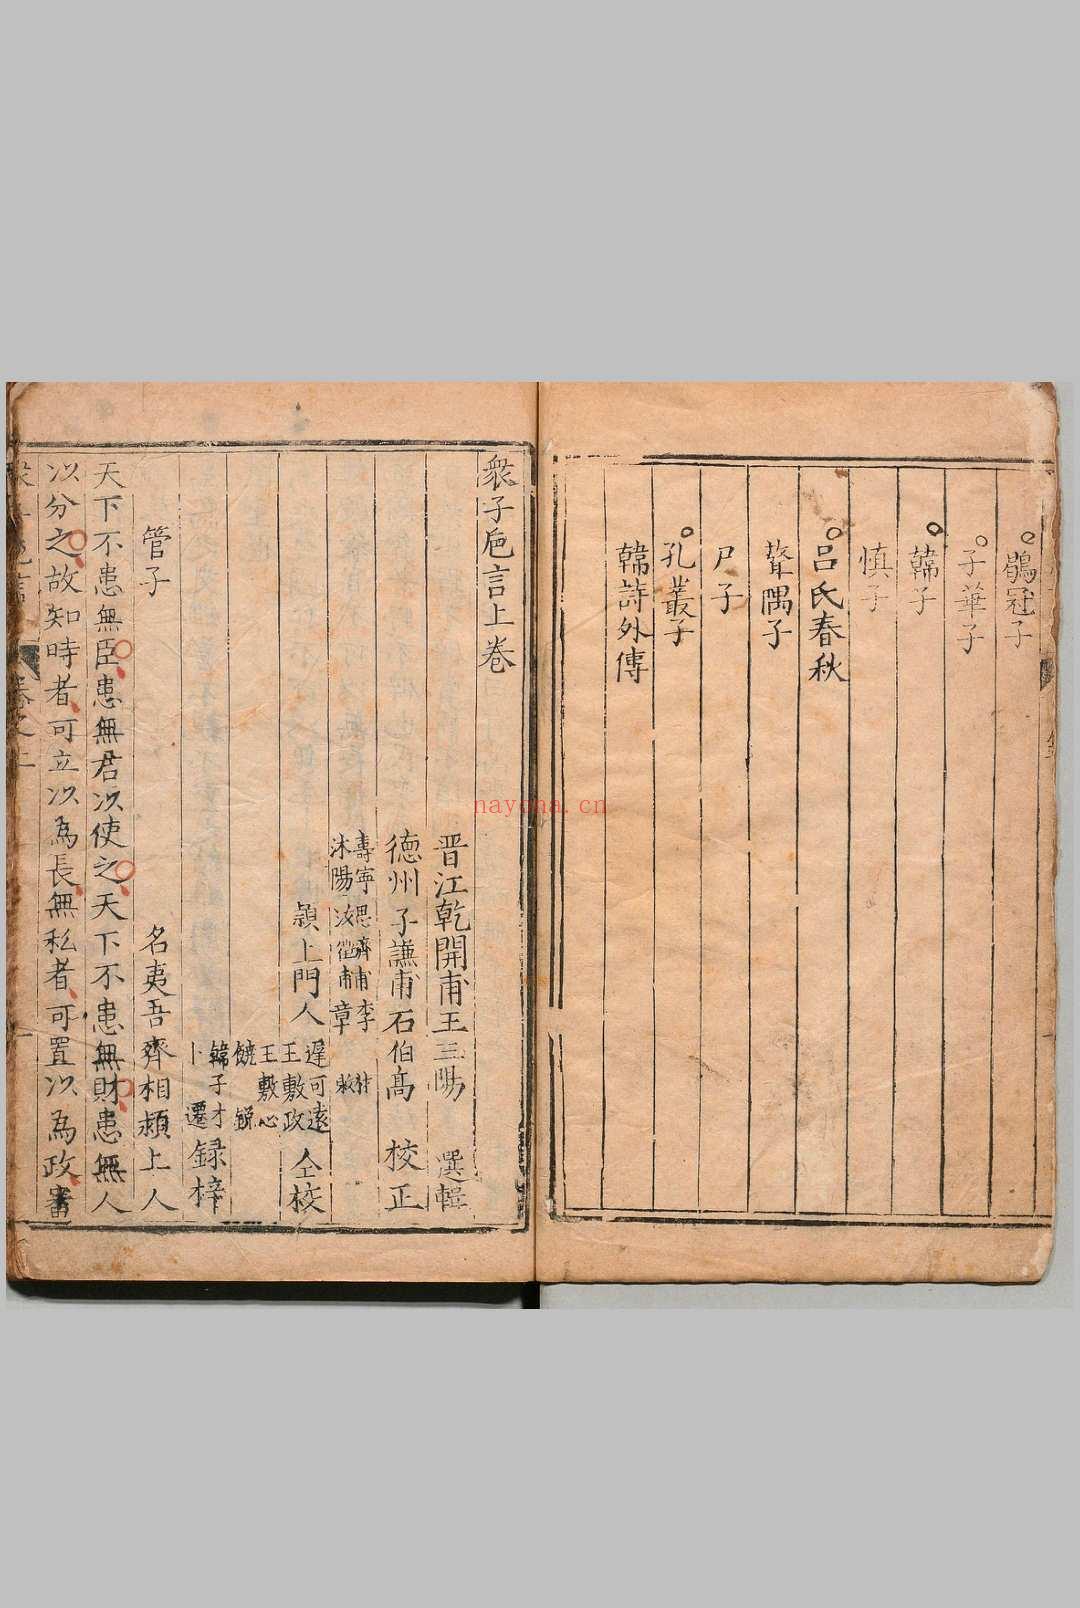 鶡冠子
子華子
韓子
慎子
呂氏春秋
聱隅子
尸子
孔叢子
韓詩外傳
衆子巵言上卷
晋江乾開甫王三陽 選輯
德州子謙甫石伯高 校正
壽寧思濟甫李
沭陽汝徵甫章
潁上門人
遲可遠
王敷政
王敷心
仝校
饒
韓子才
卜遷
録梓
管子
名夷吾齊相潁上人
天下不患無臣患無君以使之天下不患無財患無人
以分之故知時者可立以為長無私者可置以為政審
nayona.cn